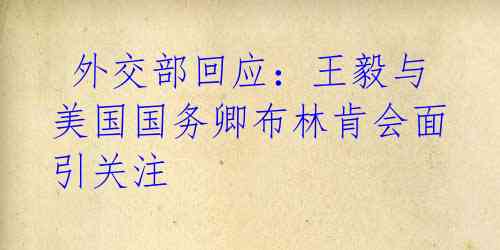 外交部回应：王毅与
美国国务卿布林肯会面
引关注